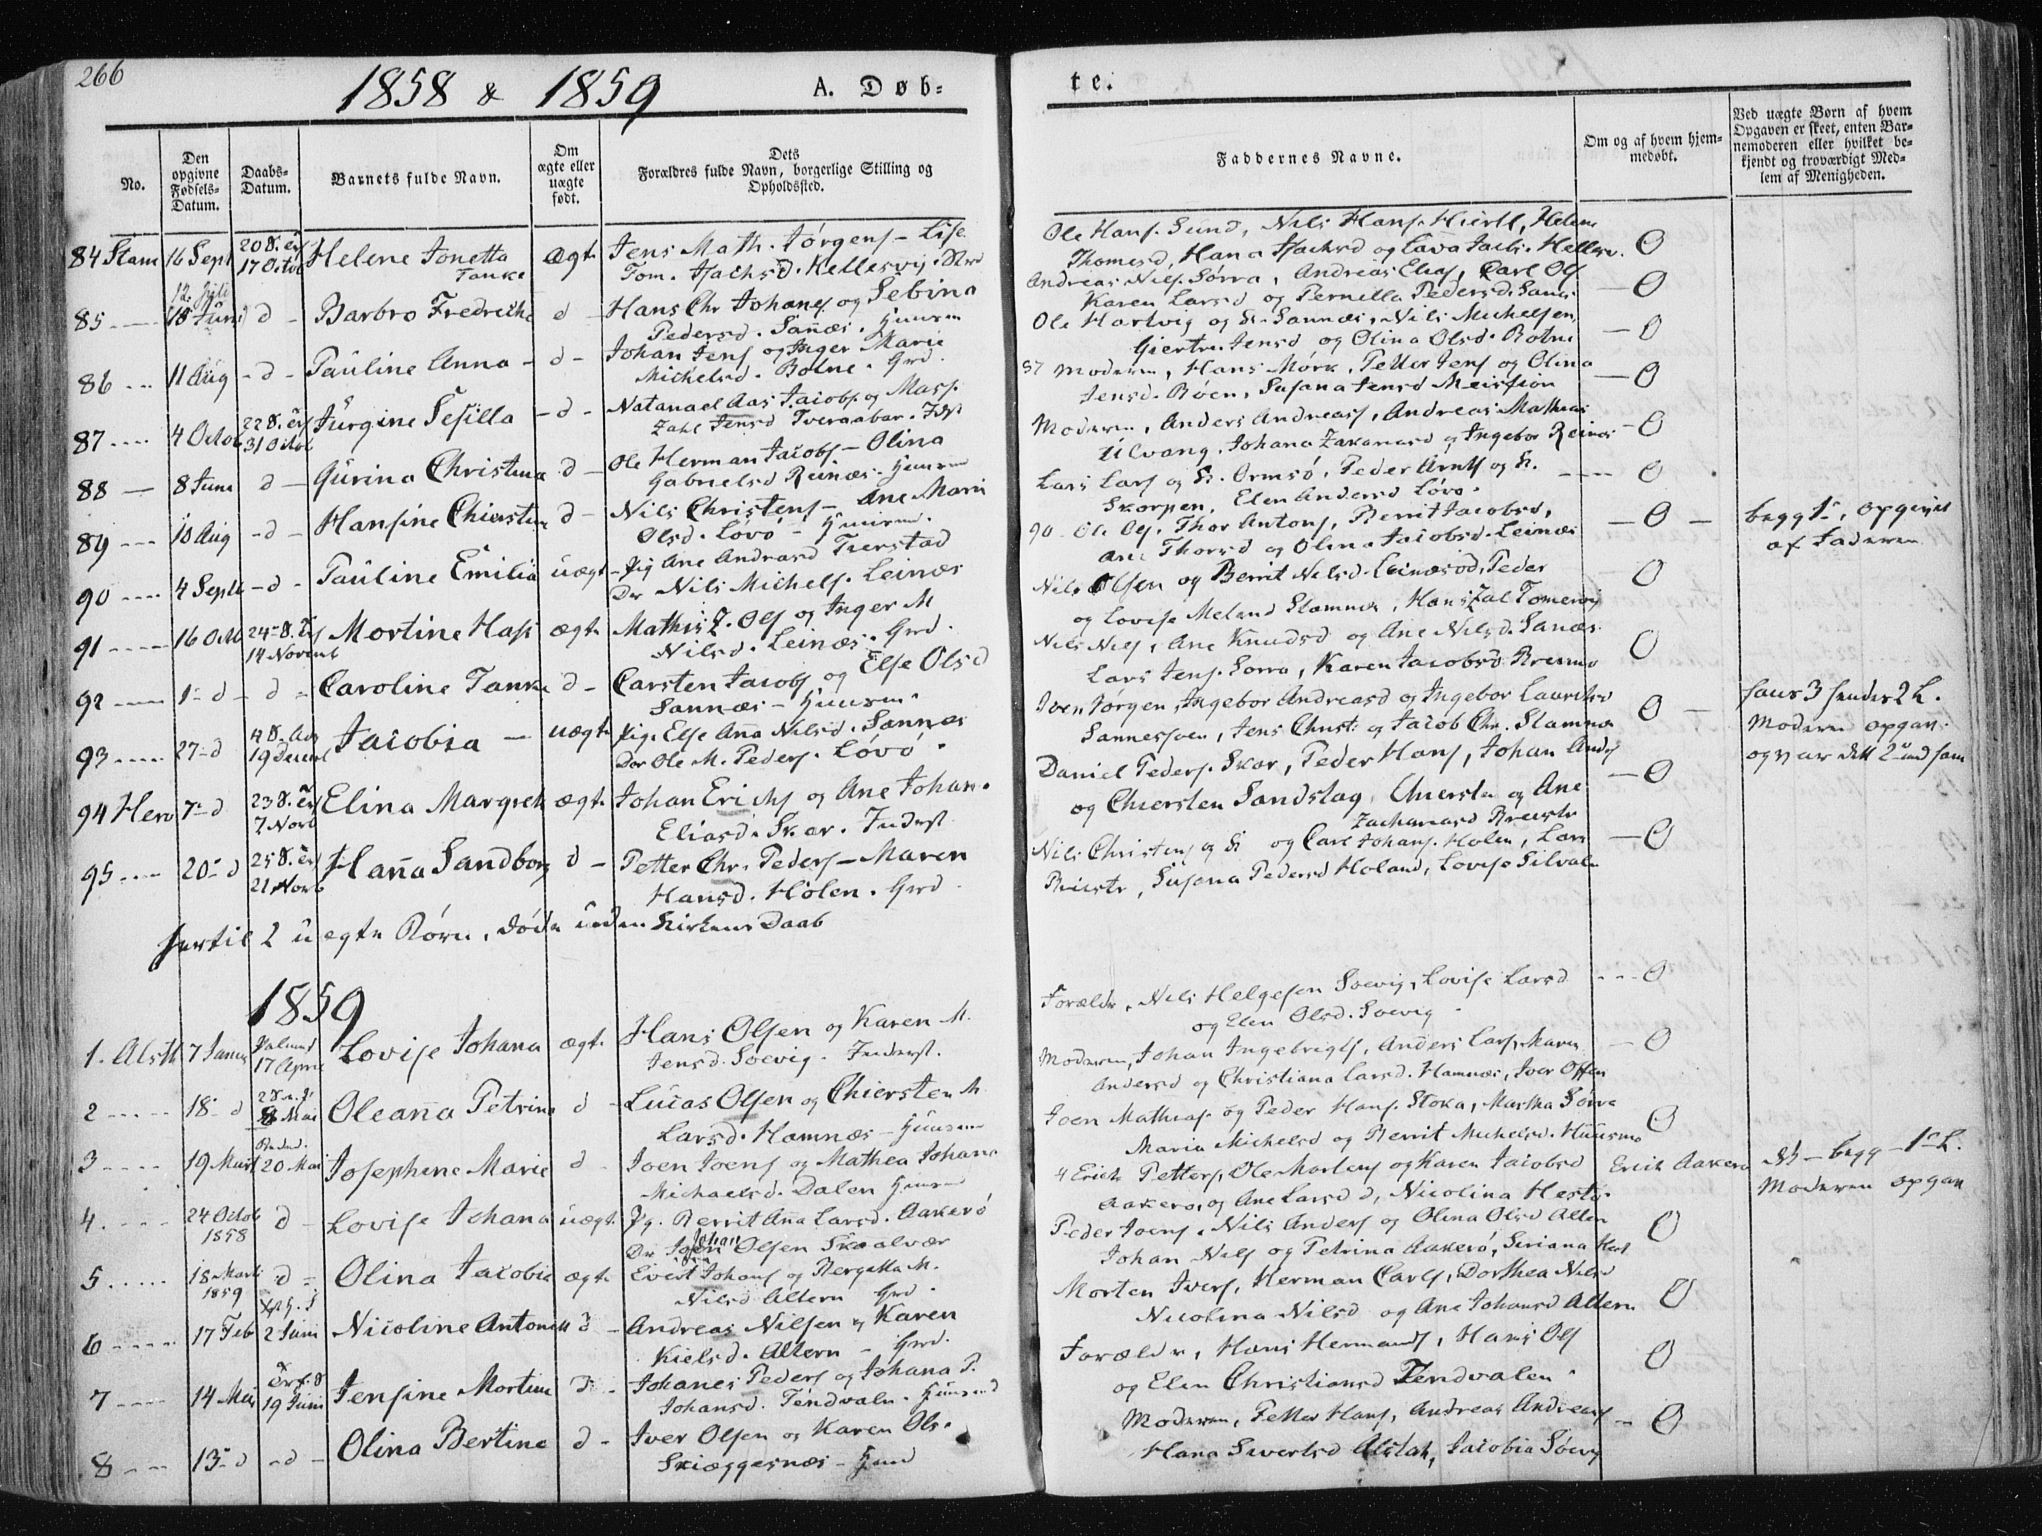 266
1858 & 1859
A. Døb-
te.
No.
Den opgivne Fødsels-Datum.
Daabs-Datum.
Barnets fulde Navn.
Om ægte eller uægte født.
Dets Forældres fulde Navn, borgerlige Stilling og Opholdsted.
Faddernes Navne.
Om og af hvem hjemmedøbt.
Ved uægte Børn af hvem Opgaven er skeet, enten Barnemoderen eller hvilket bekjendt og troværdigt Medlem af Menigheden.
84 Stam 16 Sept 20 S. 17 Octob Helene Jonetta Tanke Ægt. Jens Math. Jørgens - Lise
Tom. Isachsd. Kellesvig.
Ole Hans. Sund, Nils Hans. Helene
Thomesd, Hana Isachsd og Jacbs. O
85 12 Juli Barbro Fredricke d - Hans Chr Johans og Sebina
Pedersd. Sañæs. Huusm
Andreas Nils. Sørra, Andreas Elias, Carl Ols
Karen Larsd og Pernilla Pedersd. O
86 11 Aug - d - Pauline Anna - d - Johan Jens og Inger Marie
Michelsd. Botne. Grd.
Ole Hartvig og Sannæs, Nils Michelsen,
Giertru Jensd og Olina Olsd. Botne O
87 4 Octob 22 S. 31 Octob Jürgine Sesilla - d - Natanael Aas Jacobs. og
Zahl Jensd Tveraabar.
87 Moderen, Hans Mørk, Petter Jens og Olina
Jensd. Røen, Susana Jensd O
88 8 Juni d - Gurina Christina d - Ole Herman Jacobs - Olina
Gabrielsd Reinæs.
Moderen, Anders Andreass, Andreas Mathias
Ulvang, Johana og Ingebor Reinæs - O
89 10 Aug - d - Hansine Chiersten d - Nils Christens - Ane Marie
Olsd. Løvø -
Lars Lars og Ormsø, Peder Arnts og
Skorpen, Elen Andersd Løvø. O
90 4 Septb - d - Pauline Emilia uægt - Pig Ane Andrasd Tverstad
Dr Nils Michels. Leinæs
90 Ole Ols. Thor Antons, Berrit Jacobsd,
Ane Thorsd og Olina Jacobsd. Leinæs - O - begg 1, opgivet
af Faderen
91 16 Octb 24 S. 14 Novemb Mortine Hasi ægt. Mathis Z. Ols og Inger M
Nilsd. Leinæs. Grd.
Nils Olsen og Berrit Nilsd. Peder
og Lovise Meland Stamnæs, Hans Zal O
92 1 d - d - Caroline Tanke d - Carsten Jacobs og Else Olsd
Sannæs - Huusm.
Nils Nils, Ane Knudsd og Ane Nilsd. Sanæs.
Lars Jens. Sørra, Karen Jacobsd O
93 27 d 4 S. Adv 19 Decemb Jacobia - uægt. Pig. Else Aña Nilsd. Sannæs
Dr Ole M. Peders. Løvø.
Iver Jørgen, Ingebor Andreasd og Ingebor
Sannessøen, Jens Christ. og Jacob Chr. Stamnæs O - hans 3 hendes 2 L.
Moderen opgav.
og var dett 2
94 Herø 7 d 23 S. 7 Novb Elina Margreth ægt. Johan Erichs og Ane Johan.
Eliasd. Skar. Inderst
Daniel Peders. Skar, Peder Hans, Johan Anders
og Chiersten Sandstag, Chiersten og Ane
Zachariasd O
95 20 d 25 S. 21 Novb Haña Sandborg d - Petter Chr. Peders - Maren
Hansd. Holen. Grd.
Nils Christens og og Carl Johans. Holen, Lars
Susana Pedersd Holand, Lovise Silvalen O
hertil 2 uægte Børn, døde uden Kirkens Daab
1859
1. Alsth 7 Januar 17 April Lovise Johana ægt. Hans Olsen og Karen M.
Jensd. Soevig. Inderst.
Forældr, Nils Helgesen Soevig, Lovise Larsd
og Elen Olsd. Soevig. O
2 18 d 8 Mai Oleaña Petrina d - Lucas Olsen og Chiersten M.
Larsd. Hamnæs - Huusm
Moderen, Johan Ingebrigts, Anders Lars, Maren
Andersd og Christiana Larsd. Hamnæs, Iver Olsen O
3 19 Mart 20 Mai Josephine Marie d - Joen Joens og Mathea Johana
Michaelsd. Dalen
Joen Mathias. og Peder Hans. Stoka, Martha Sørra
Maria Michelsd og Berrit Michelsd. Huusmo O
4. 24 Octob 1858 d - Lovise Johana uægt. Pg. Berrit Aña Larsd. Aakerø
Dr Johan Olsen Skaalvær
4 Erich Petters, Ole Mortens og Karen Jacobsd
Aakerø, og Ane Larsd d, Nicolina Hest. Erich Aakerø begg - 1 L.
Moderen opgav
5 18 Mart 1859 d - Olina Jacobie ægt. Evert Johans og Bergitta M.
Nilsd Altern Grd.
Peder Joens, Nils Anders og Olina Olsd Alten
Johan Nils og Petrina Aakerø, Siriana O
6 17 Feb 2 Juni Nicoline Antonette d - Andreas Nilsen og Karen
Kielsd. Altern - Grd.
Morten Ivers, Herman Carls, Dorthea Nilsd
Nicolina Nilsd og Ane Johansd Altern O
7 14 Mai 19 Juni Jensine Mortine d - Johanes Peders og Johana P.
Johansd. Tendvaln. Huusmd
Forældr, Hans Hermands, Hans Ols
og Elen Christiansd Tendvalen. O
8 13 d - d - Olina Bertine d - Iver Olsen og Karen Ols.
Skiæggesnæs -
Moderen, Petter Hans, Andreas Andreas
Hana Siwertsd Alstah, Jacobia Søvig O